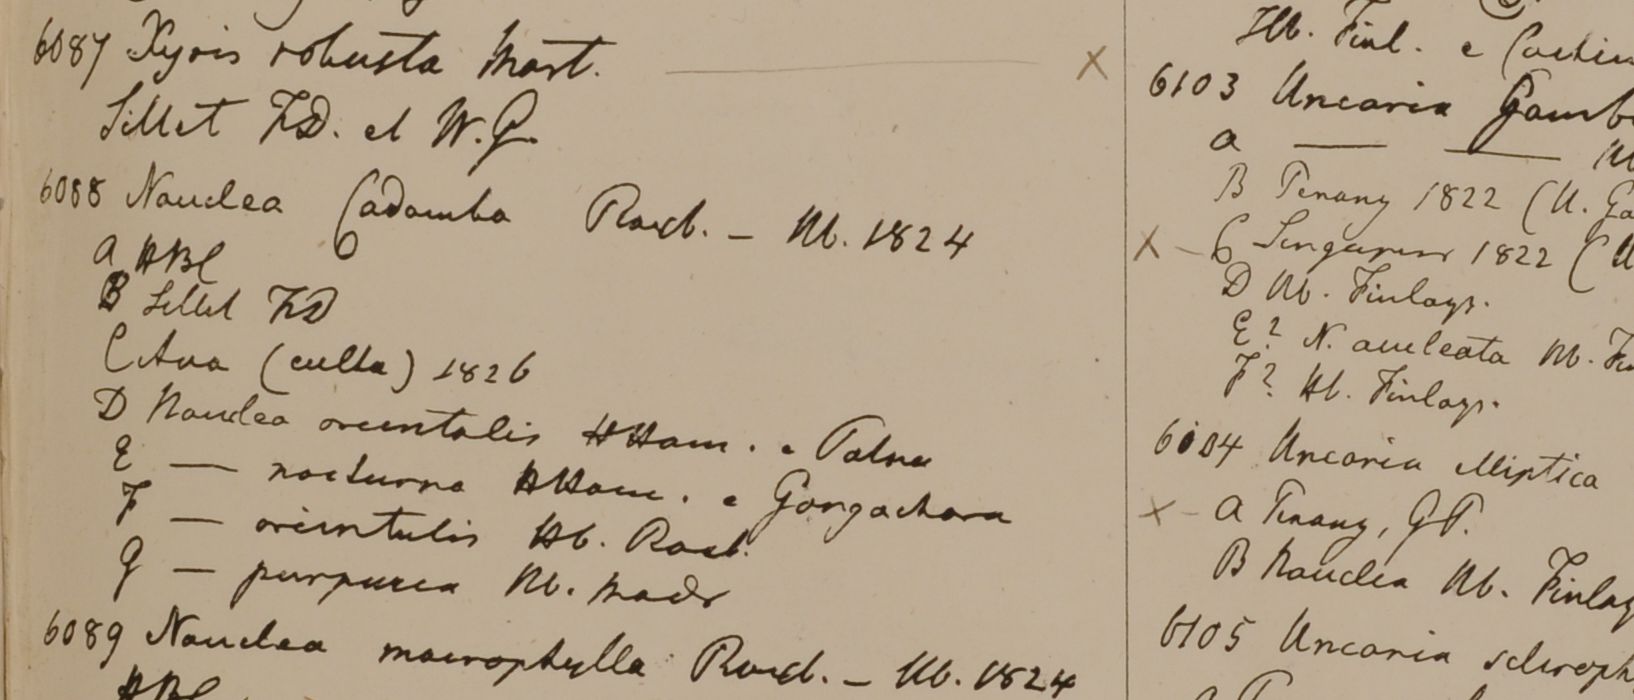 6087 Xyris robusta Mart.
Sillet FD. et W.G.
6088 Nauclea Cadamba Roxb. — Hb. 1824
a HBC
B Sillet FD
C Ava (culta) 1826
D Nauclea orientalis HHam. e Patna
E — nocturna HHam. e Gongachora
F — orientalis Hb. Roxb.
G — purpurea Hb. Madr
6089 Nauclea macrophylla Roxb. — Hb. 1824
HBC
Hb. Finl. e Cochin
6103 Uncaria Gamb
a — —
B Penang 1822 (U. Ga
X — C Singapur 1822 (U
D Hb. Finlays.
E? N. aculeata Hb. Fin
F? Hb. Finlays.
6104 Uncaria elliptica
X — a Penang, GP.
B Nauclea Hb. Finlay
6105 Uncaria scleroph